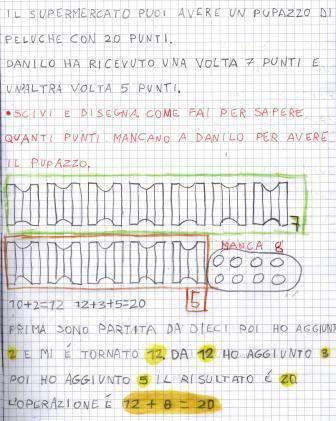 IL SUPERMERCATO PUOI AVERE UN PUPAZZO DI
PELUCHE CON 20 PUNTI.
DANILO HA RICEVUTO UNA VOLTA 7 PUNTI E
UN'ALTRA VOLTA 5 PUNTI.
• SCIVI E DISEGNA COME FAI PER SAPERE
QUANTI PUNTI MANCANO A DANILO PER AVERE
IL PUPAZZO.
7
MANCA 8
5
10+2=12 12+3+5=20
PRIMA SONO PARTITA DA DIECI POI HO AGGIUNT
2 E MI È TORNATO 12, DA 12 HO AGGIUNTO 3
POI HO AGGIUNTO 5 IL RISULTATO É 20
L'OPERAZIONE É 12 + 8 = 20